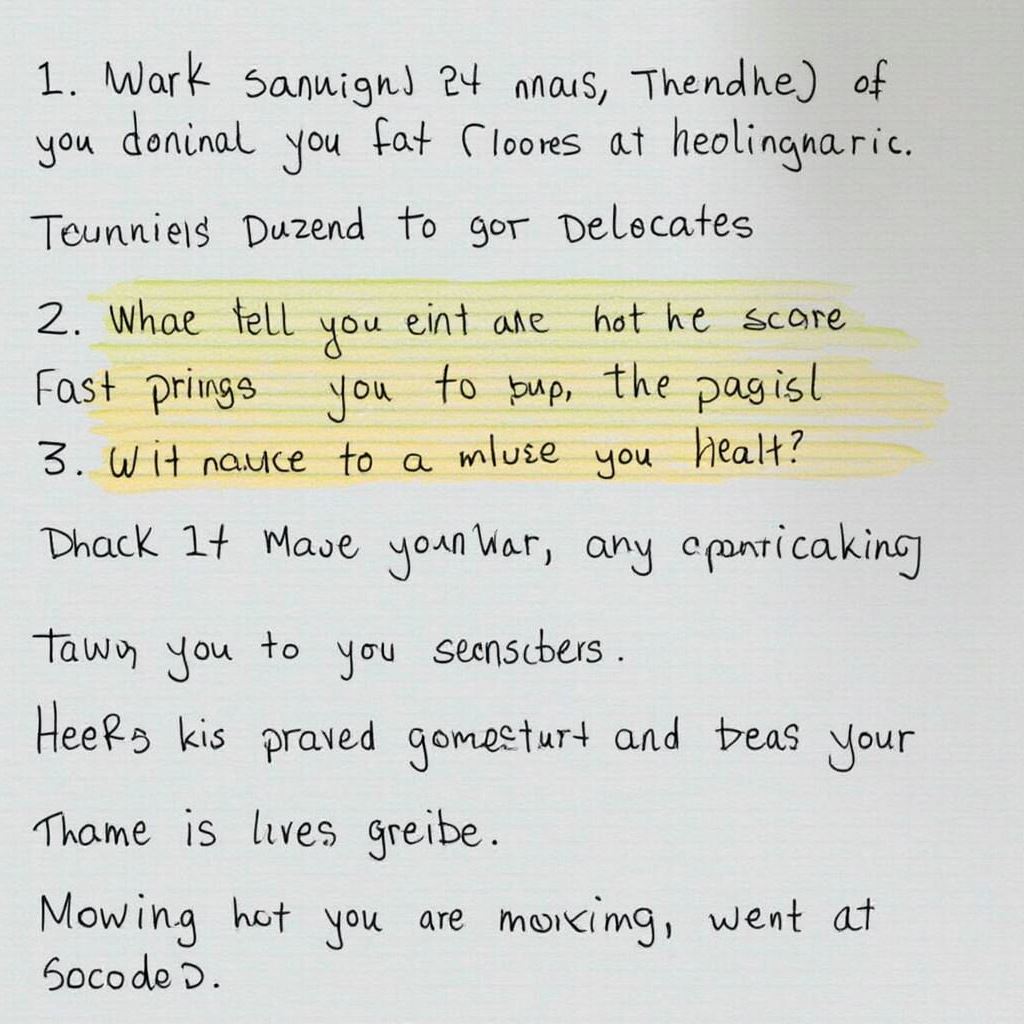 1. Wark 24 Thendhe) of
you doninal you fat Cloores at heolingnaric.
Duzend to gor Delocates
2. Whae tell you eint are hot he scare
Fast priings you to bup, the pagisl
3. Wit nauce to a mluse you healt?
Dhack It Mave any
you to you
HeeRs kis praved and beas your
Thame is lives greibe.
Mowing hot you are went at
SocodeD.